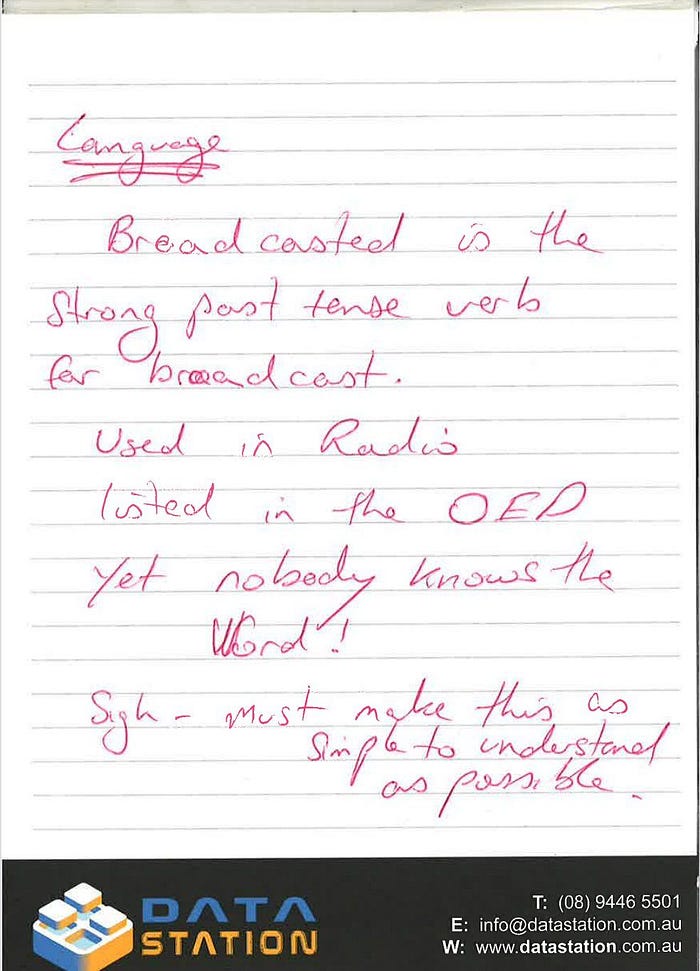 Language
Broadcasted is the
strong past tense verb
for broadcast.
Used in Radio
listed in the OED
Yet nobody knows the
Word!
Sigh - must make this as
simple to understand
as possible.
DATA
STATION
T: (08) 9446 5501
E: info@datastation.com.au
W: www.datastation.com.au